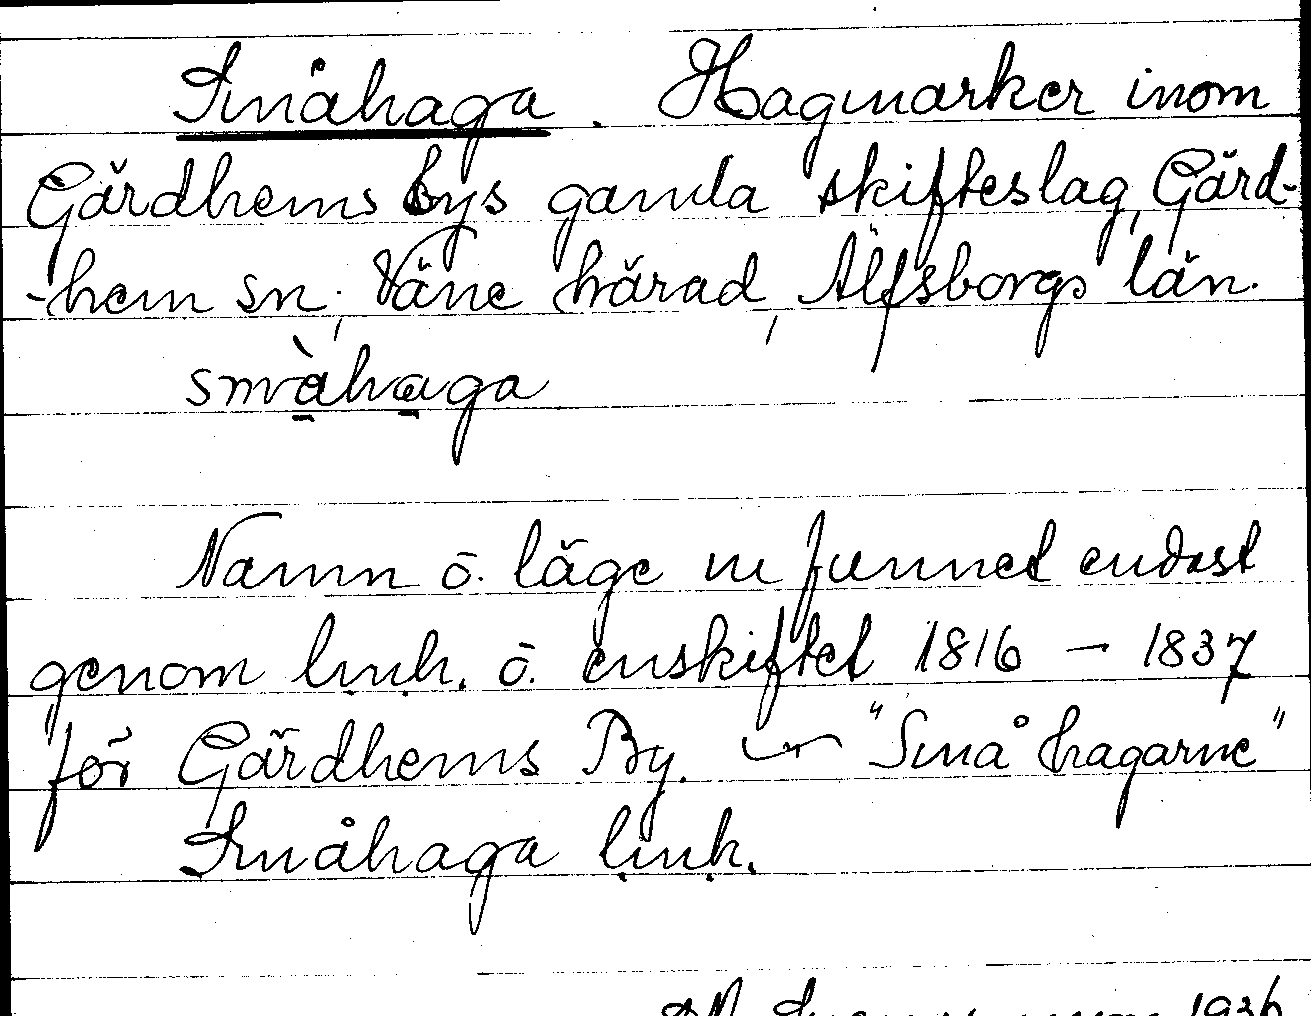 Småhaga. Hagmarker inom
Gärdhems bys gamla skifteslag, Gärd-
-hem sn, Väne härad, Älfsborgs län.
småhaga
Namn o. läge funnet endast
genom o. enskiftet 1816 – 1837
för Gärdhems By. "Små hagarne"
Småhaga
1936